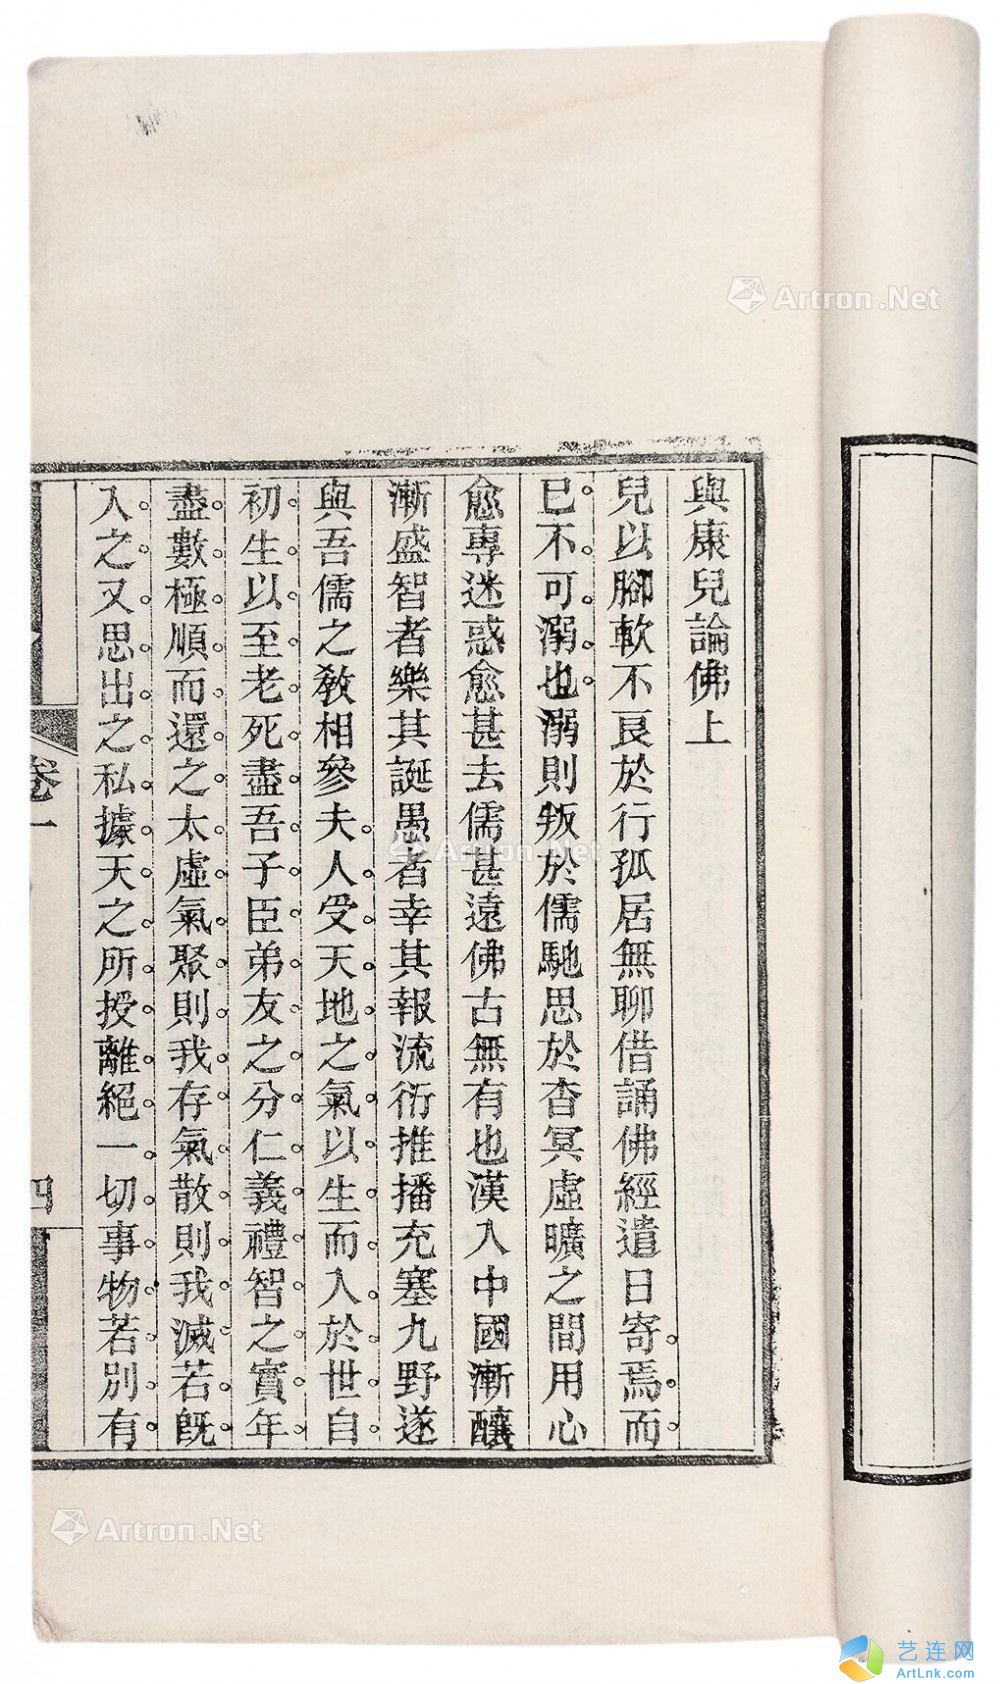 與康兒論佛上
兒以腳軟不良於行孤居無聊借誦佛經遣日寄焉而
已不可溺也溺則叛於儒馳思於杳冥虛曠之間用心
愈專迷惑愈甚去儒甚遠佛古無有也漢入中國漸釀
漸盛智者樂其誕愚者幸其報流衍推播充塞九野遂
與吾儒之教相參夫人受天地之氣以生而入於世自
初生以至老死盡吾子臣弟友之分仁義禮智之實年
盡數極順而還之太虛氣聚則我存氣散則我滅若既
入之又思出之私據天之所授離絕一切事物若別有
卷一
四
Artron.Net
Artron.Net
Artron.Net
艺连网
ArtLnk.com